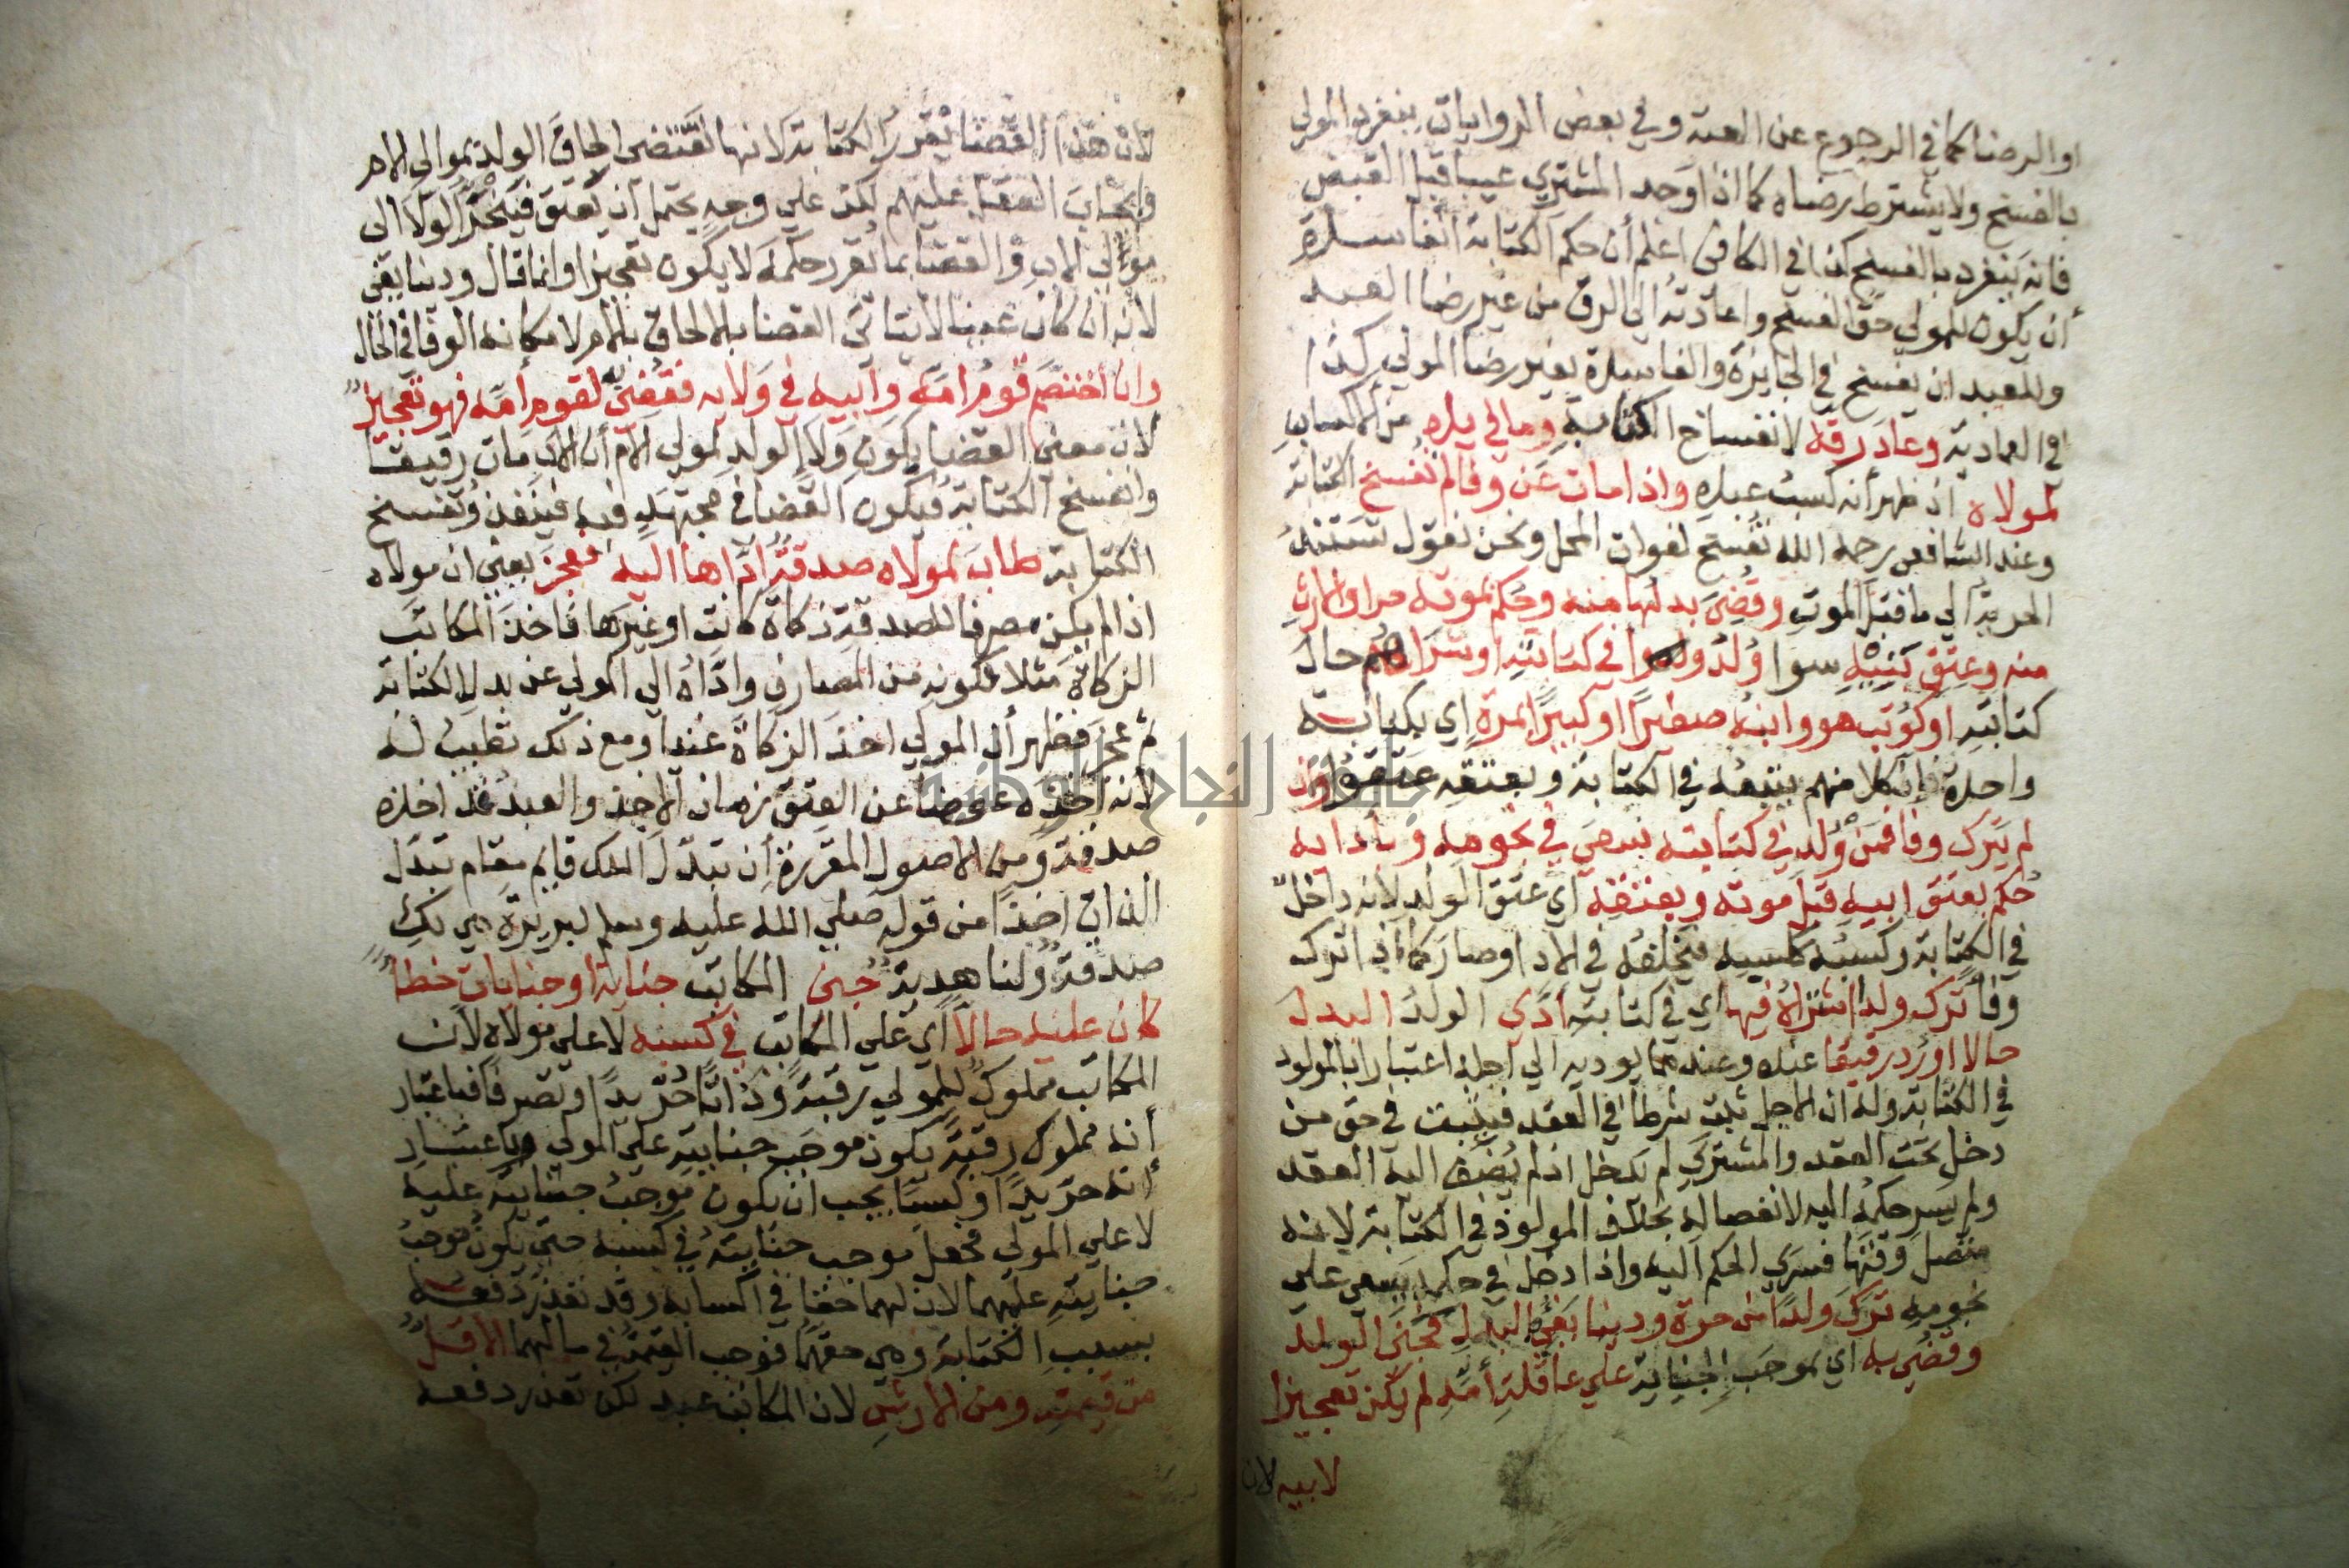 او الرضا كما في الرجوع عن الهبة وفي بعض الروايات ينفرد المولي
بالفسخ ولا يشترط رضاه كما اذا وجد المشتري عيبا قبل القبض
فانه ينفرد بالفسخ كذا في الكافي اعلم أن حكم الكتابة الفاسدة
أن يكون للمولي حق الفسخ واعادته الي الرق من غير رضا العبد
وللعبد ان يفسخ في الجايزة والفاسدة بغير رضا المولي كذا
في العمادية وعاد رقه لانفساخ الكتابة وما في يده من الاكساب
لمولاه اذ ظهر أنه كسب عبده واذا مات عن وفا لم تفسخ الكتابة
وعند الشافعي رحمه الله تفسخ لفوات المحل ونحن نقول تستند
الحرية الي ما قبل الموت وقضي بدلها منه وحكم بموته حرا والارث
منه وعتق بنيه سوا ولدوا في كتابته او شراهم حال
كتابته او كوتب هو وابنه صغيرا او كبيرا بمرة اي بكتابة
واحدة فان كلا منهم يتبعه في الكتابة وبعتقه عتقوا وان
لم يترك وفا فمن ولد في كتابته سعي في نجومه وبادايه
حكم بعتق ابيه قبل موته وبعتقه اي عتق الولد لانه داخل
في الكتابة وكسبه ككسبه فيخلفه في الادا وصار كما اذا ترك
وفا ترك ولدا شراه فيها اي في كتابته ادي الولد البدل
حالا او رد رقيقا عنده وعندهما يوديه الي اجله اعتبارا بالمولود
في الكتابة وله ان الاجل يثبت شرطا في العقد فيثبت في حق من
دخل تحت العقد والمشتري لم يدخل اذ لم يضف اليه العقد
ولم يسر حكمه اليه لانفصاله بخلاف المولود في الكتابة لانه
متصل وقتها فسري الحكم اليه واذا دخل في حكمه يسعي علي
نجومه ترك ولدا من حرة ودينا يفي البدل فجني الولد
وقضي به اي بموجب الجناية علي عاقلة أمه لم يكن تعجيزا
لابيه لان
لان هذا القضا يقرر الكتابة لانها تقتضي الحاق الولد بموالي الام
وايجاب العقل عليهم لكن علي وجه يحتمل أن يعتق فينجر الولا الي
موالي الاب والقضا بما تقرر حكمه لا يكون تعجيزا وانما قال ودينا يفي
لانه ان كان عينا لا يتاتي القضا بالالحاق بالام لامكانه الوفا في الحال
وان اختصم قوم أمه وأبيه في ولايه فقضي به لقوم أمه فهو تعجيز
لان معني القضا بكون ولا الولد لموالي الام أن الاب مات رقيقا
وانفسخ الكتابة فيكون القضا في مجتهد فيه فينفذ وتنفسخ
الكتابة طاب لمولاه صدقة اداها اليه فعجز يعني ان مولاه
اذا لم يكن مصرفا للصدقة زكاة كانت او غيرها فاخذ المكاتب
الزكاة مثلا لكونه من المصارف واداه الي المولي عن بدل الكتابة
ثم عجز فظهر أن المولي اخذ الزكاة غنيا ومع ذلك تطيب له
لانه اخذه عوضا عن العتق زمان الاخذ والعبد قد اخذه
صدقة ومن الاصول المقررة أن تبدل الملك قايم مقام تبدل
الذات اخذا من قوله صلي الله عليه وسلم لبريرة هي لك
صدقة ولنا هدية جني المكاتب جناية او جنايات خطأ
كان عليه حالا اي علي المكاتب في كسبه لا علي مولاه لان
المكاتب مملوك للمولي رقبة وذاتا حر يدا وتصرفا فباعتبار
أنه مملوك رقبة يكون موجب جنايته علي المولي وباعتبار
أنه حر يدا وكسبا يجب ان يكون موجب جنايته عليه
لا علي المولي فجعل موجب جنايته في كسبه حتي يكون موجب
جنايته عليهما لان لهما حقا في اكسابه وقد تعذر دفعه
بسبب الكتابة وهي حقهما فوجب القيمة في مالهما الاقل
من قيمته ومن الارش لان المكاتب عبد لكن تعذر دفعه
جامعة النجاح الوطنية